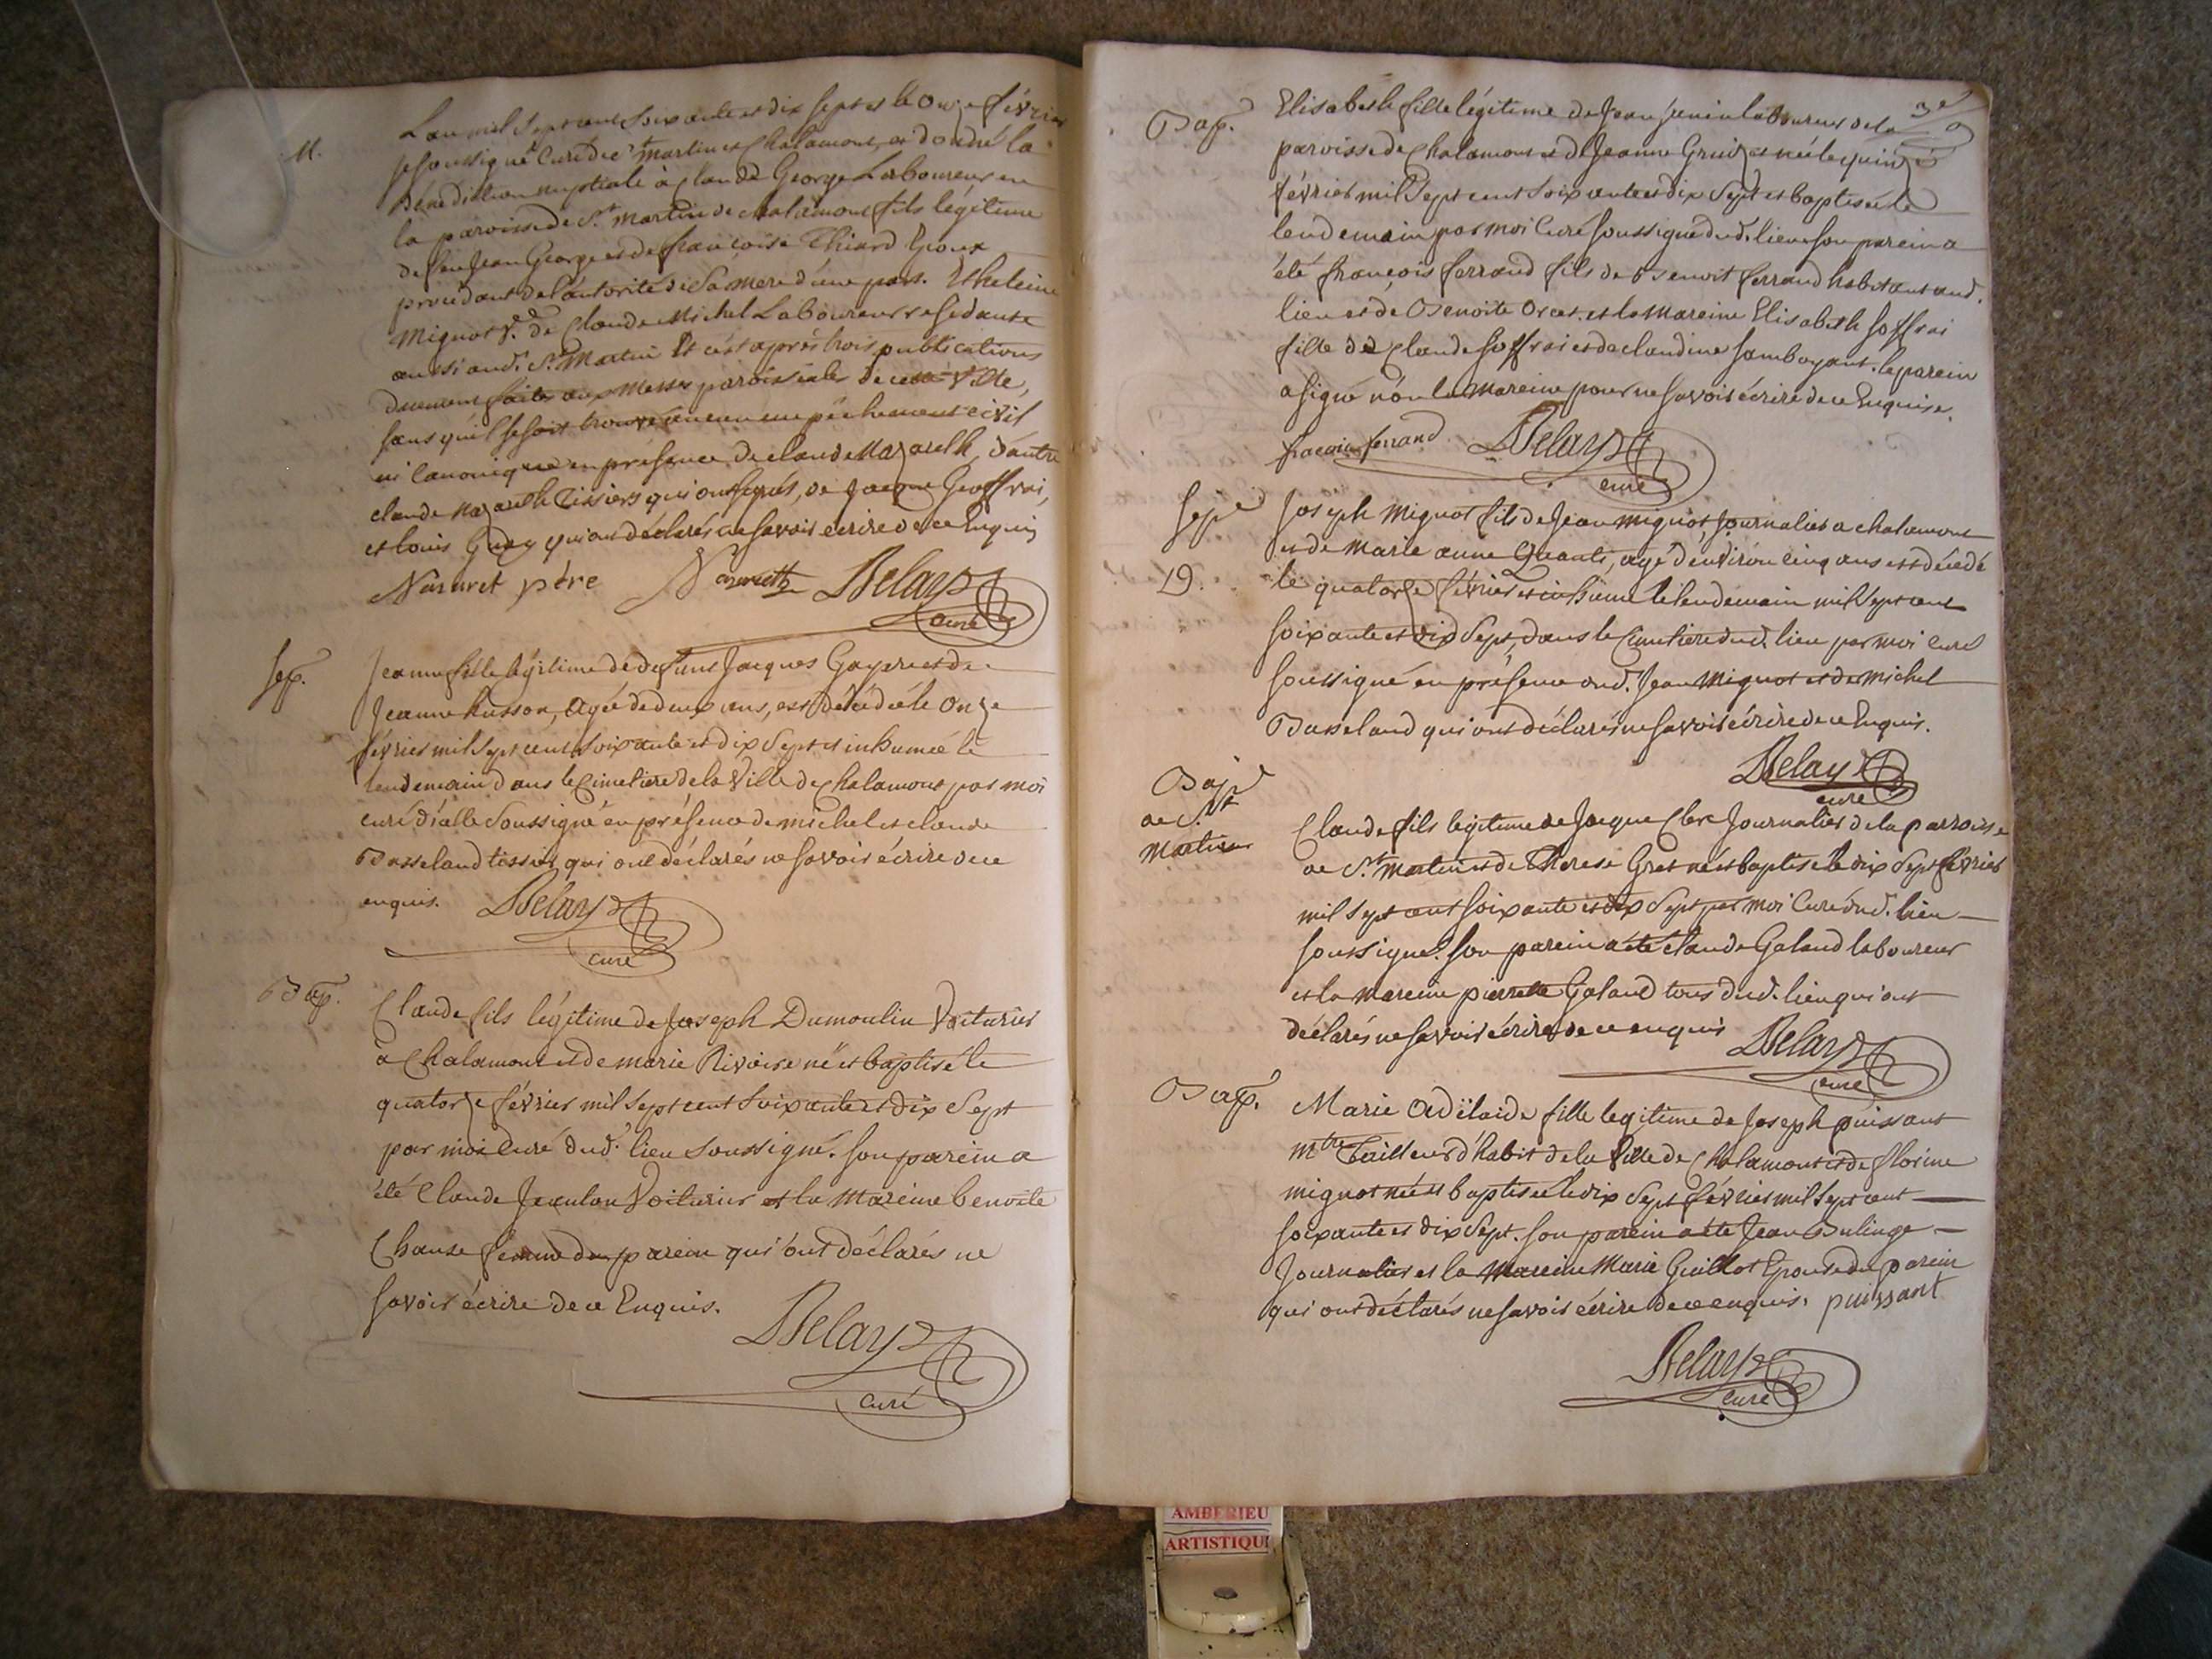 M.
L'an mil sept cent soixante et dix sept et le onze février
je soussigné Curé de St martin et Chalamont, ai donné la
Bénédiction nuptiale à Claude George Laboureur en
la paroisse de St. Martin de chalamont fils légitime
de feu Jean George et de françoise Thiard Epoux
procédant de l'autorité de Sa mere d'une part. Et heleine
Mignot ve. de Claude Michel Laboureur residante
aussi aud. St. Martin Et c'est après trois publications
duement faites aux Messes paroissiales de cette Ville,
sans qu'il se soit trouvé aucun empêchement civil
ni canonique en présence de claude Nazareth, d'autre
claude Nazareth Tissiers qui ont signés, de Jacque Geoffrai,
et louis qui ont déclarés ne savoir écrire de ce Enquis
Nazaret père Nazareth Delay
curé
Sep.
Jeanne fille légitime de defunt Jacques Goyne et de
Jeanne husson, agée de deux ans, est décédée le onze
février mil sept cent soixante et dix sept et inhumée le
lendemain dans le Cimetiere de la Ville de Chalamont par moi
curé d'icelle Soussigné en présence de michel et claude
Basseland tissier qui ont déclarés ne savoir écrire de ce
enquis. Delay
curé
Bap.
Claude fils légitime de Joseph Dumoulin Voiturier
à Chalamont et de marie Rivoire né et baptisé le
quatorze février mil sept cent soixante et dix Sept
par moi Curé dud. lieu Soussigné. Son parein a
été Claude Jeanton Voiturier et la Mareine benoite
Chanse femme du parein qui ont déclarés ne
savoir écrire de ce Enquis.
Delay
curé
3e
Bap.
Elisabeth fille légitime de Jean Janin laboureur de la
paroisse de Chalamont et de Jeanne est née le quinze
février mil sept cent soixante et dix Sept et baptisée le
lendemain par moi Curé soussigné dud. lieu son parein a
été françois ferrand fils de Benoit ferrand habitant aud.
lieu et de Benoite Orcet. et la Mareine Elisabeth Joffrai
fille de Claude Joffrai et de claudine Jamboyant. le parein
a signé non la Mareine pour ne savoir écrire de ce Enquise.
francois ferrand Delay
curé
Sep
19.
Joseph Mignot fils de Jean Mignot, Journalier a chalamont
et de Marie anne agé d'environ cinq ans est décédé
le quatorze février et inhumé le lendemain mil Sept cent
soixante et dix Sept, dans le Cimetiere dud. lieu par moi Curé
soussigné en présence dud. Jean Mignot et de Michel
Basseland qui ont déclarés ne savoir écrire de ce Enquis.
Delay
curé
Bap
de St
Martin
Claude fils legitime de Jacque Clerc Journalier de la parroisse
de St. Martin et de Therese Gros né et baptisé le dix Sept février
mil sept cent soixante et dix Sept par moi Curé dud. lieu
soussigné. Son parein a été claude Galand laboureur
et la mareine pierrette Galand tous dud. lieu qui ont
déclarés ne savoir écrire de ce enquis Delay
curé
Bap.
Marie Adélaide fille legitime de Joseph puissant
Mtre Tailleur d'habit de la Ville de Chalamont et de florine
mignot née et baptisée le dix Sept février mil Sept cent
soixante et dix Sept. Son parein a été Jean Bulinge
Journalier et la Mareine Marie Guillot Epouse du parein
qui ont déclarés ne savoir écrire de ce enquis. puissant
Delay
curé
AMBERIEU
ARTISTIQU